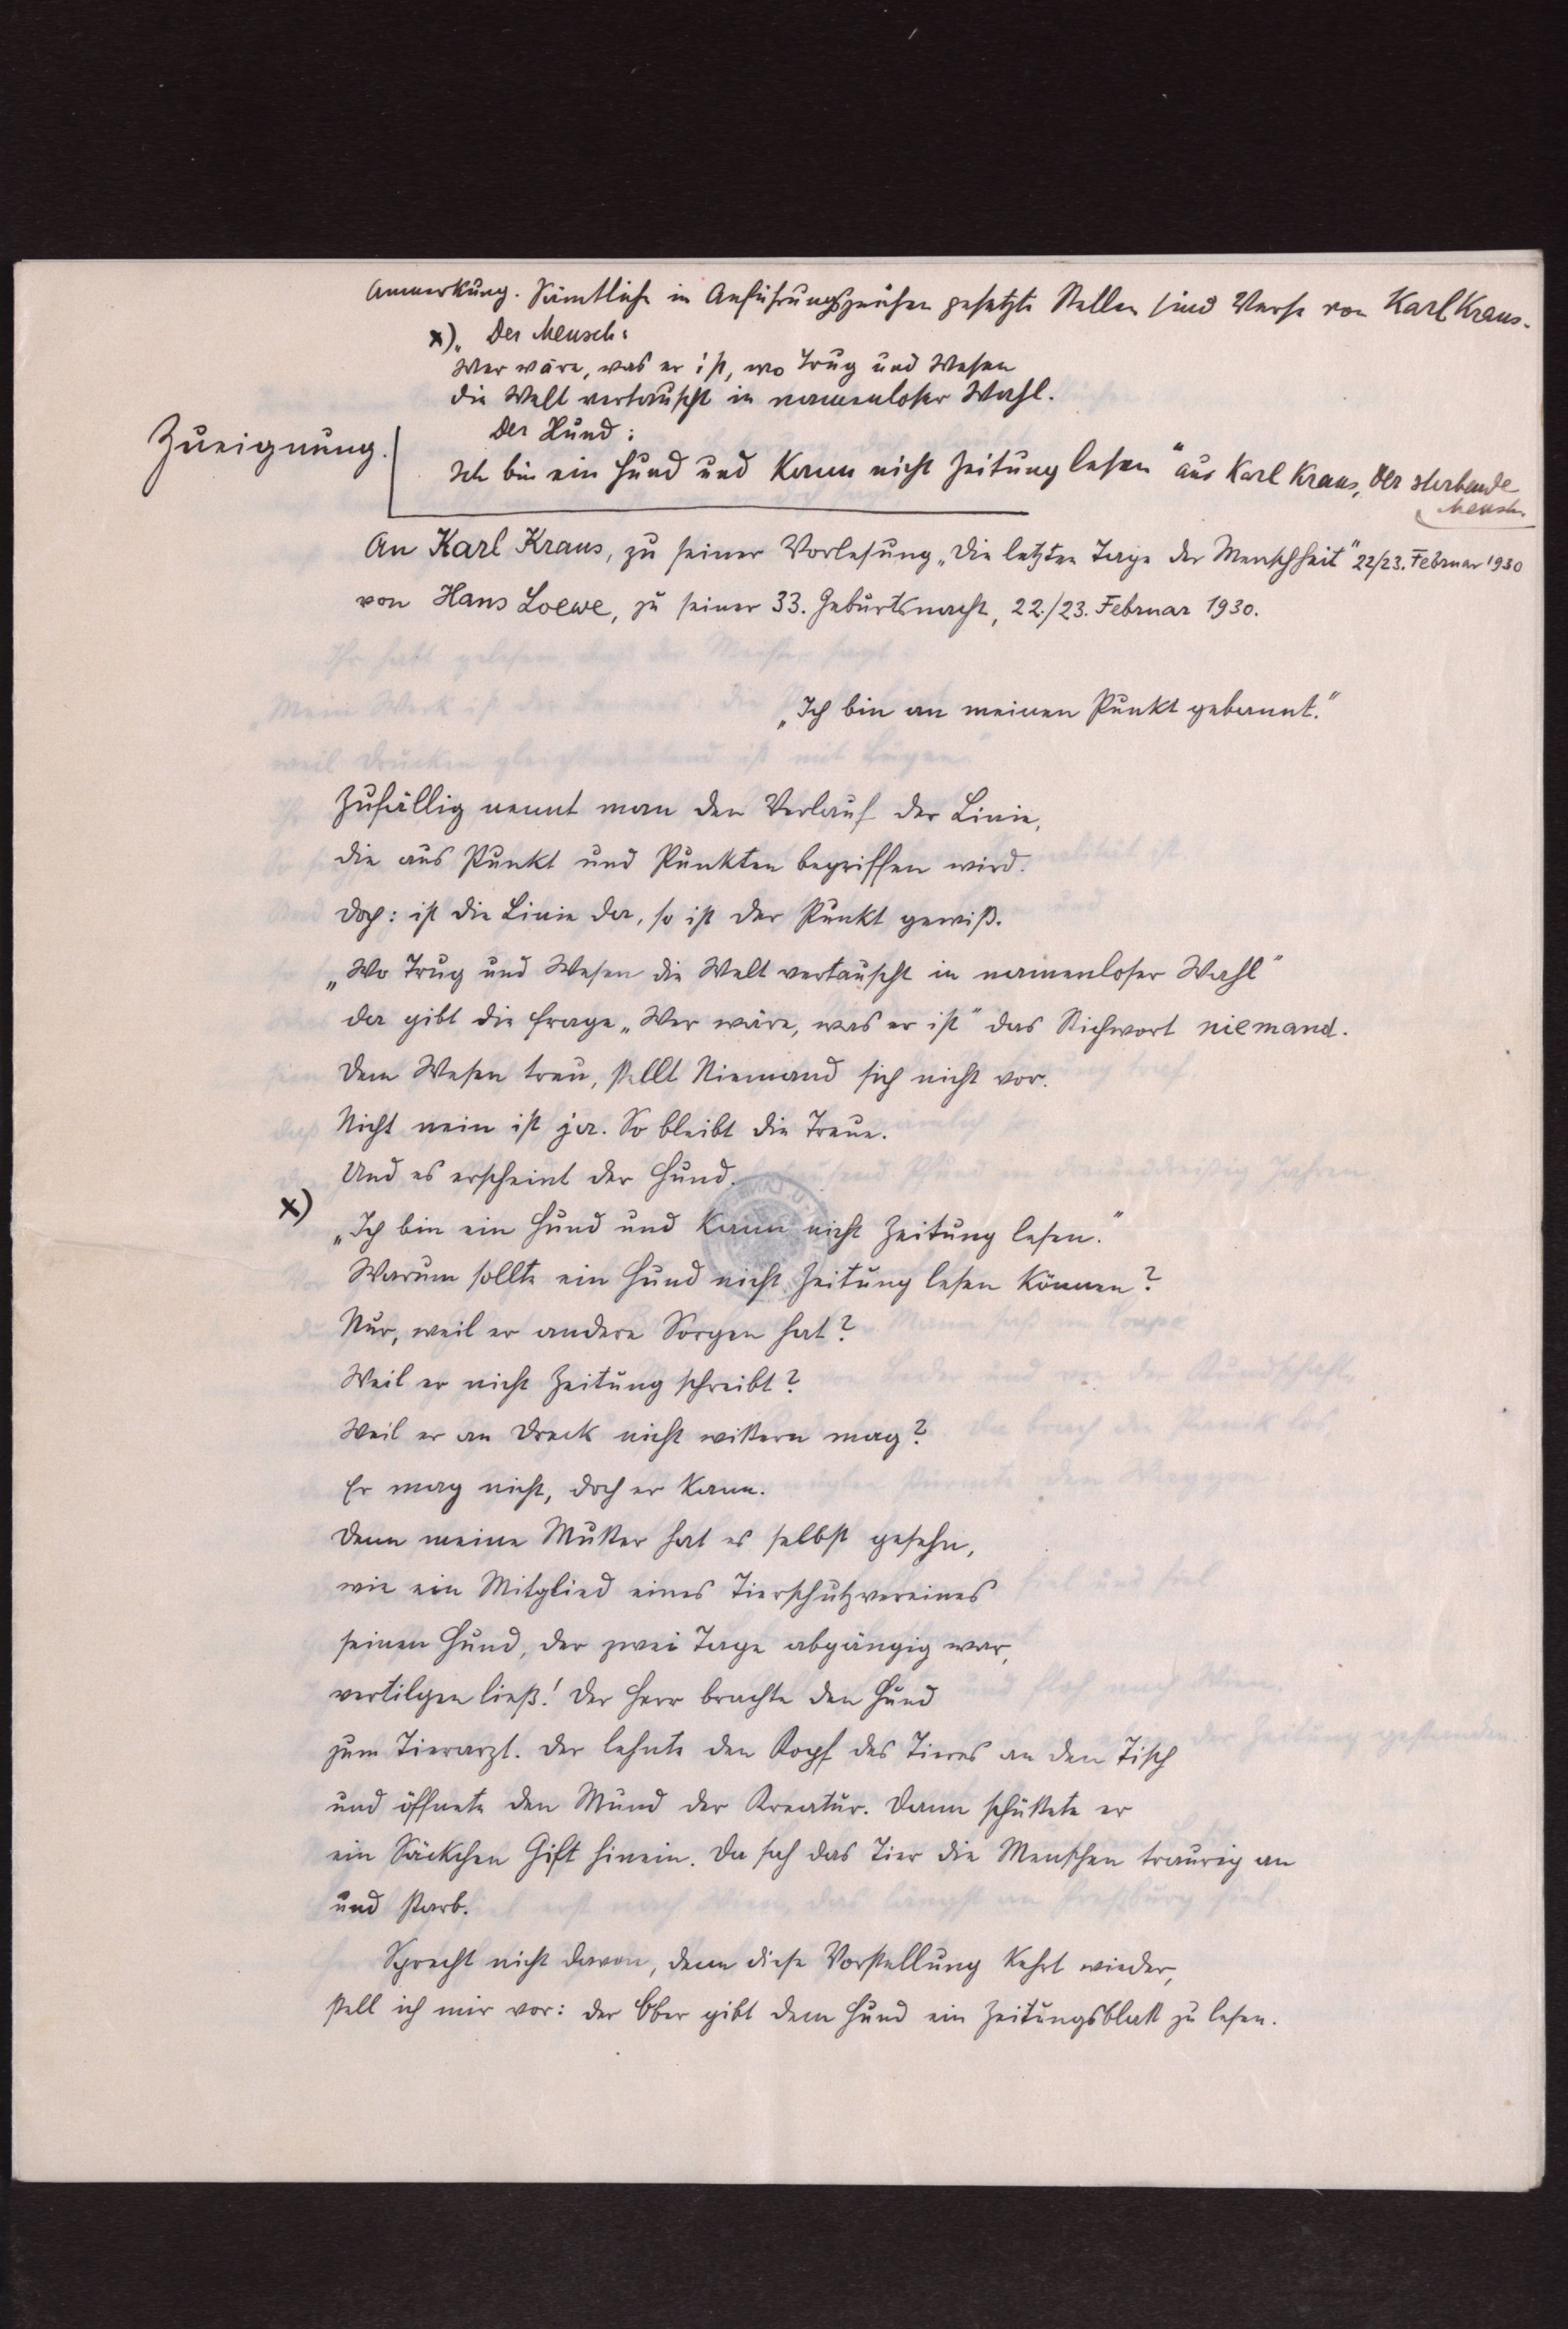 Anmerkung. Sämtliche in Anführungszeichen gesetzte Stellen sind Verse von Karl Kraus.
x) „Der Mensch:
Wer wäre, was er ist, wo Trug und Wesen
die Welt vertauscht in namenloser Wahl.
Der Hund:
Zueignung.
Ich bin ein Hund und kann nicht Zeitung lesen" aus Karl Kraus, Der sterbende
Mensch.
An Karl Kraus, zu seiner Vorlesung „Die letzten Tage der Menschheit" 22/23. Februar 1930
von Hans Loewe, zu seiner 33. Geburtsnacht, 22./23. Februar 1930.
„Ich bin an meinen Punkt gebannt."
Zufällig nennt man den Verlauf der Linie,
die aus Punkt und Punkten begriffen wird.
Doch: ist die Linie da, so ist der Punkt gewiß.
„Wo Trug und Wesen die Welt vertauscht in namenloser Wahl"
da gibt die Frage „Wer wäre, was er ist" das Stichwort niemand.
Dem Wesen treu, stellt Niemand sich nicht vor.
Nicht nein ist ja. So bleibt die Treue.
Und es erscheint der Hund.
x) „Ich bin ein Hund und kann nicht Zeitung lesen."
Warum sollte ein Hund nicht Zeitung lesen können?
Nur, weil er andere Sorgen hat?
Weil er nicht Zeitung schreibt?
Weil er an Dreck nicht wittern mag?
Er mag nicht, doch er kann.
Denn meine Mutter hat es selbst gesehn,
wie ein Mitglied eines Tierschutzvereines
seinen Hund, der zwei Tage abgängig war,
vertilgen ließ! Der Herr brachte den Hund
zum Tierarzt. Der lehnte den Kopf des Tieres an den Tisch
und öffnete den Mund der Kreatur. Dann schüttete er
ein Säckchen Gift hinein. Da sah das Tier die Menschen traurig an
und starb.
Sprecht nicht davon, denn diese Vorstellung kehrt wieder,
stell ich mir vor: der Ober gibt dem Hund ein Zeitungsblatt zu lesen.